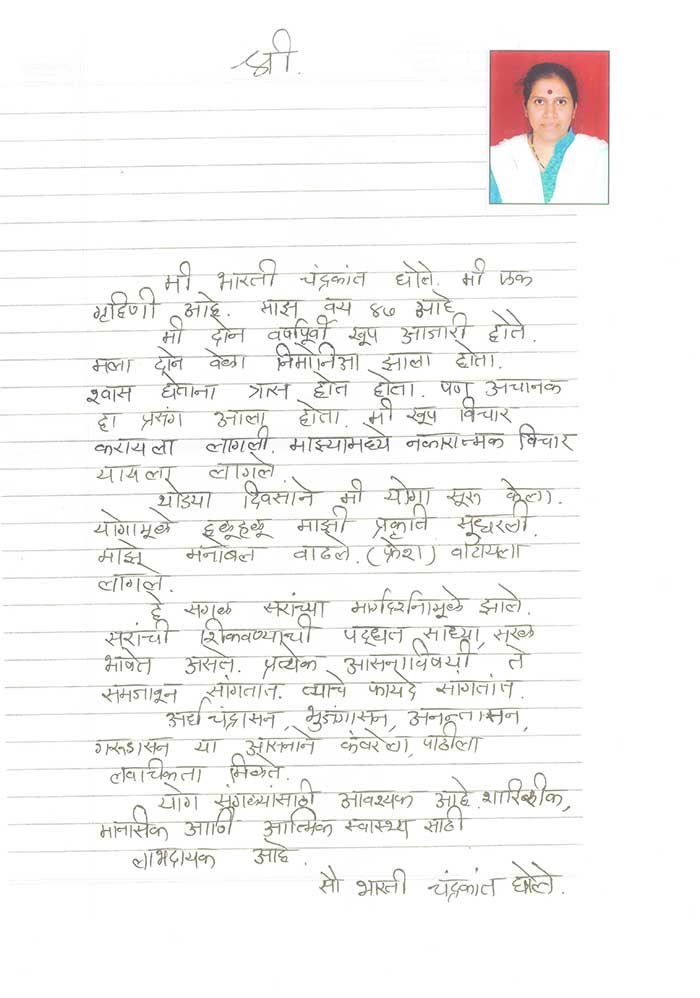 श्री.
मी भारती चंद्रकांत घोले. मी एक
गृहिणी आहे. माझ वय ४७ आहे
मी दोन वर्षापूर्वी खूप आजारी होते.
मला दोन वेळा निमोनिआ झाला होता.
श्वास घेताना त्रास होत होता. पण अचानक
हा प्रसंग आला होता. मी खूप विचार
करायला लागली. माझ्यामध्ये नकारात्मक विचार
यायला लागले.
थोडया दिवसाने मी योगा सूरू केला.
योगामूळे हळूहळू माझी प्रकृति सूधरली.
माझे मनोबल वाढले. (फ्रेश) वाटायला
लागले.
हे सगळ सरांच्या मार्गदर्शनामूळे झाले.
सरांची शिकवण्याची पद्धत साध्या, सरळ
भाषेत असते. प्रत्येक आसनाविषयी ते
समजावून सांगतात. त्याचे फायदे सांगतात.
अर्ध चंद्रासन, भुजंगासन, अनन्तासन,
गरूडासन या आसनाने कंबरेला, पाठीला
लवचिकता मिळते.
योग सगळ्यांसाठी आवश्यक आहे. शारिरीक,
मानसिक आणि आत्मिक स्वास्थ्य साठी
लाभदायक आहे.
सौ भारती चंद्रकांत घोले.